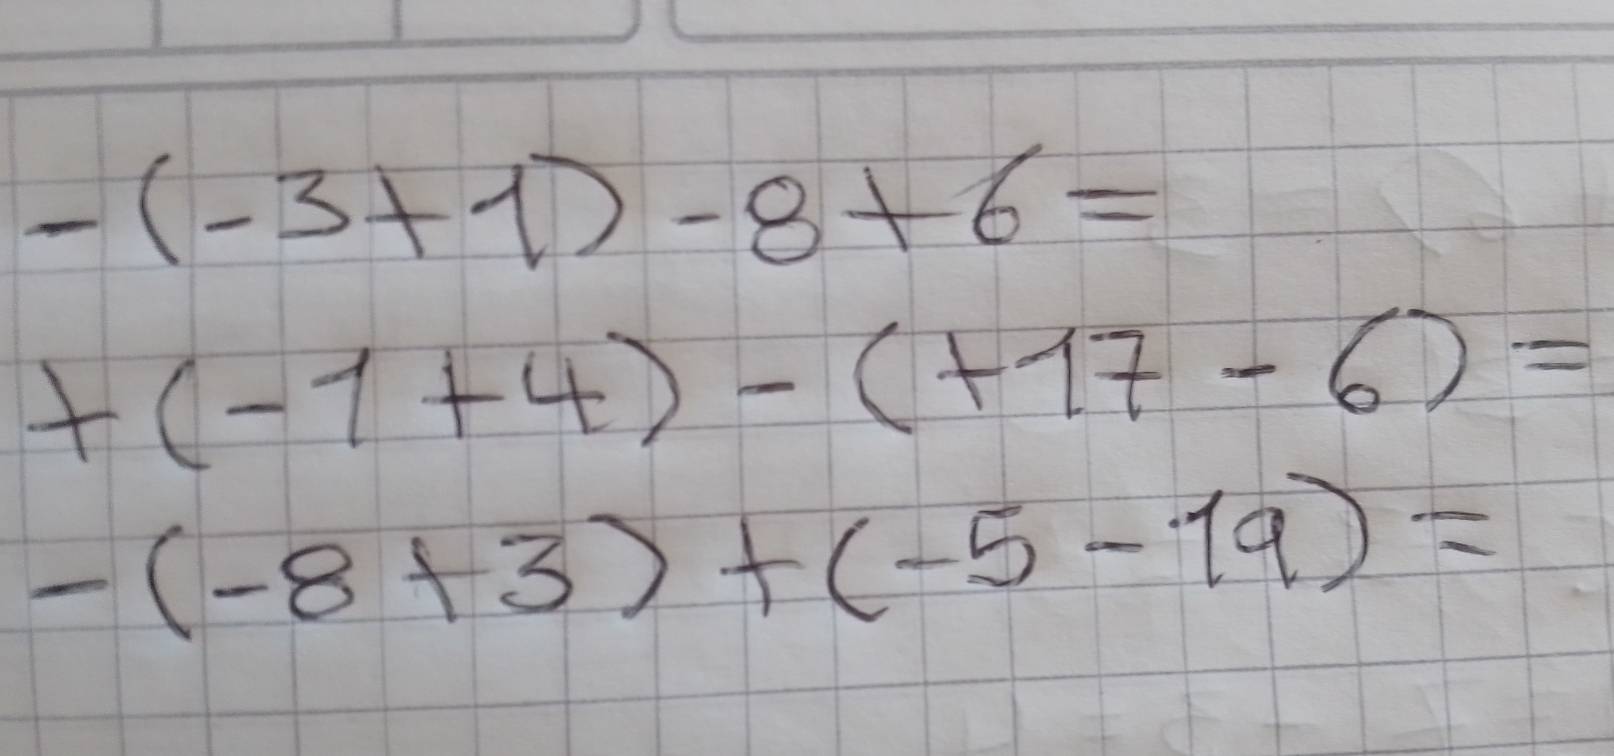 -(-3+1)-8+6=
+(-1+4)-(+17-6)=
-(-8+3)+(-5-19)=